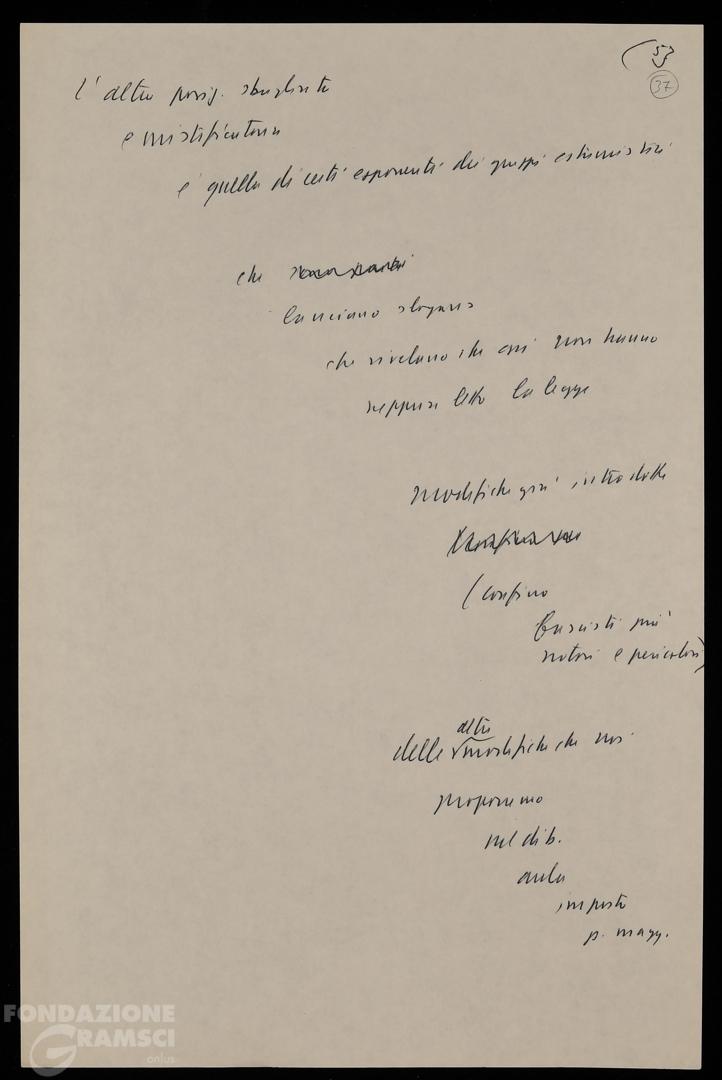 53
37
L'altra posiz. sbagliata
e mistificatoria
è quella di certi esponenti dei gruppi estremistici
che
lanciano slogans
che rivelano che essi non hanno
neppure letto la legge
modifiche già introdotte
(confino
fascisti più
notori e pericolosi)
altre
delle modifiche che noi
proponiamo
nel dib.
aula
imposto
p. magg.
FONDAZIONE
GRAMSCI
onlus